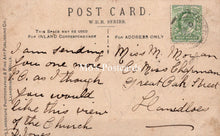 POST CARD.
W.H.B. SERIES.
THIS SPACE MAY BE USED
FOR INLAND CORRESPONDENCE
FOR ADDRESS ONLY
I am sending
You one more
P.C. as I though
You would
like this view
of the Church
Miss M. Morgan
C/o Miss Chapman
Great Oak Street
Llanidloes